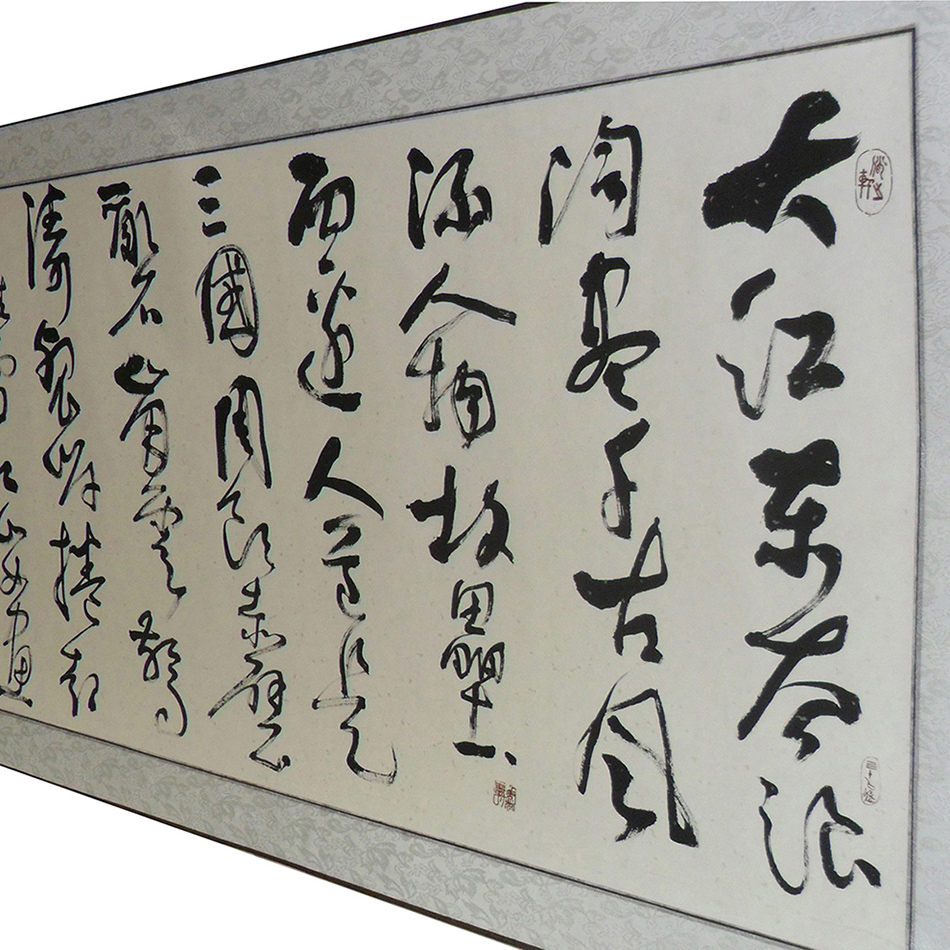 大江東去浪
淘盡千古風
流人物故壘
西邊人道是
三國周郎赤壁
亂石崩雲驚
濤裂岸捲起
雪江山如畫